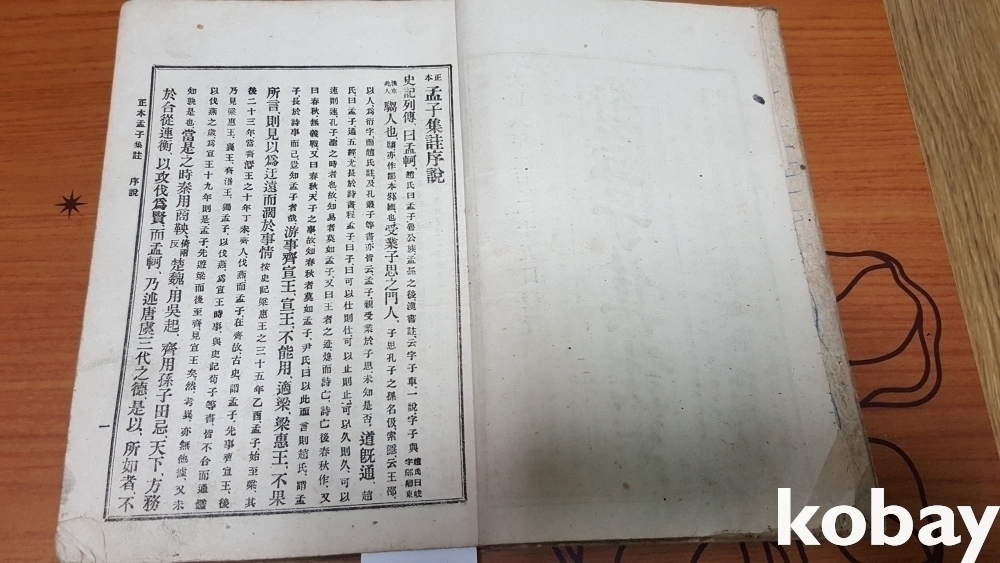 正本 孟子集註序說
史記列傳、曰孟軻、趙氏曰孟子魯公族孟孫之後漢書註云字子車一說字子輿 趙氏曰岐字邠卿東
漢京兆人 騶人也、騶亦作鄒、本邾國也 受業子思之門人、子思孔子之孫名伋、索隱云王劭、
以人爲衍字而趙氏註及孔叢子等書亦皆云孟子、親受業於子思未知是否、道旣通、趙
氏曰孟子通五經尤長於詩書程孟子曰子曰可以仕則仕可以止則止可以久則久、可以
速則速孔子聖之時者也故知易者莫如孟子又曰王者之迹熄而詩亡、詩亡後春秋作、又
曰春秋無義戰又曰春秋天子之事故知春秋者莫如孟子、尹氏曰以此而言則趙氏、謂孟
子長於詩書而已豈知孟子者哉、游事齊宣王、宣王、不能用、適梁、梁惠王、不果
所言、則見以爲迂遠而濶於事情 按史記梁惠王之三十五年乙酉孟子始至梁、其
後二十三年當齊湣王之十年丁未齊人伐燕而孟子、在齊故、古史謂孟子、先事齊宣王、後
乃見梁惠王、襄王、齊湣王、獨孟子、以伐燕、爲宣王時事、與史記荀子等書、皆不合而通鑑
以伐燕之歲爲宣王十九年則是孟子、先遊梁而後至齊見宣王矣、然、考異、亦無他據、又未
知孰是也 當是之時秦用商鞅、倚兩反 楚魏、用吳起、齊用孫子田忌、天下、方務
於合從連衡、以攻伐爲賢、而孟軻、乃述唐虞三代之德、是以、所如者、不
正本孟子集註 序說
一
kobay